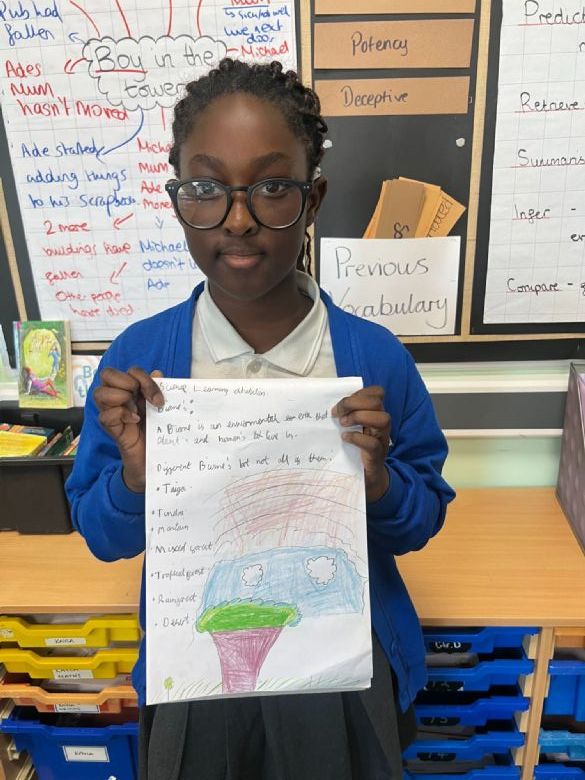 Pub had
fallen
Ades
mum
hasn't moved
Ade started
adding things
to his Scrapbook
2 more
buildings have
fallen
Other people
have died
Boy in the
tower
we next
door
Michael
Mum
Ade
Michael
doesn't
Ade
Potency
Deceptive
Previous
Vocabulary
Predic
Retrieve
Summaris
Infer -
Compare -
Learning
Biome's
A Biome is an enviromental on erth that
plant's and human's to live in.
Different Biome's but not all of them:
• Taiga
• Tundra
• Mantain
• Mixed forest
• Tropical forest
• Rainforest
• Desert
KAYLA
KAYLA
MATHS
KAYLA